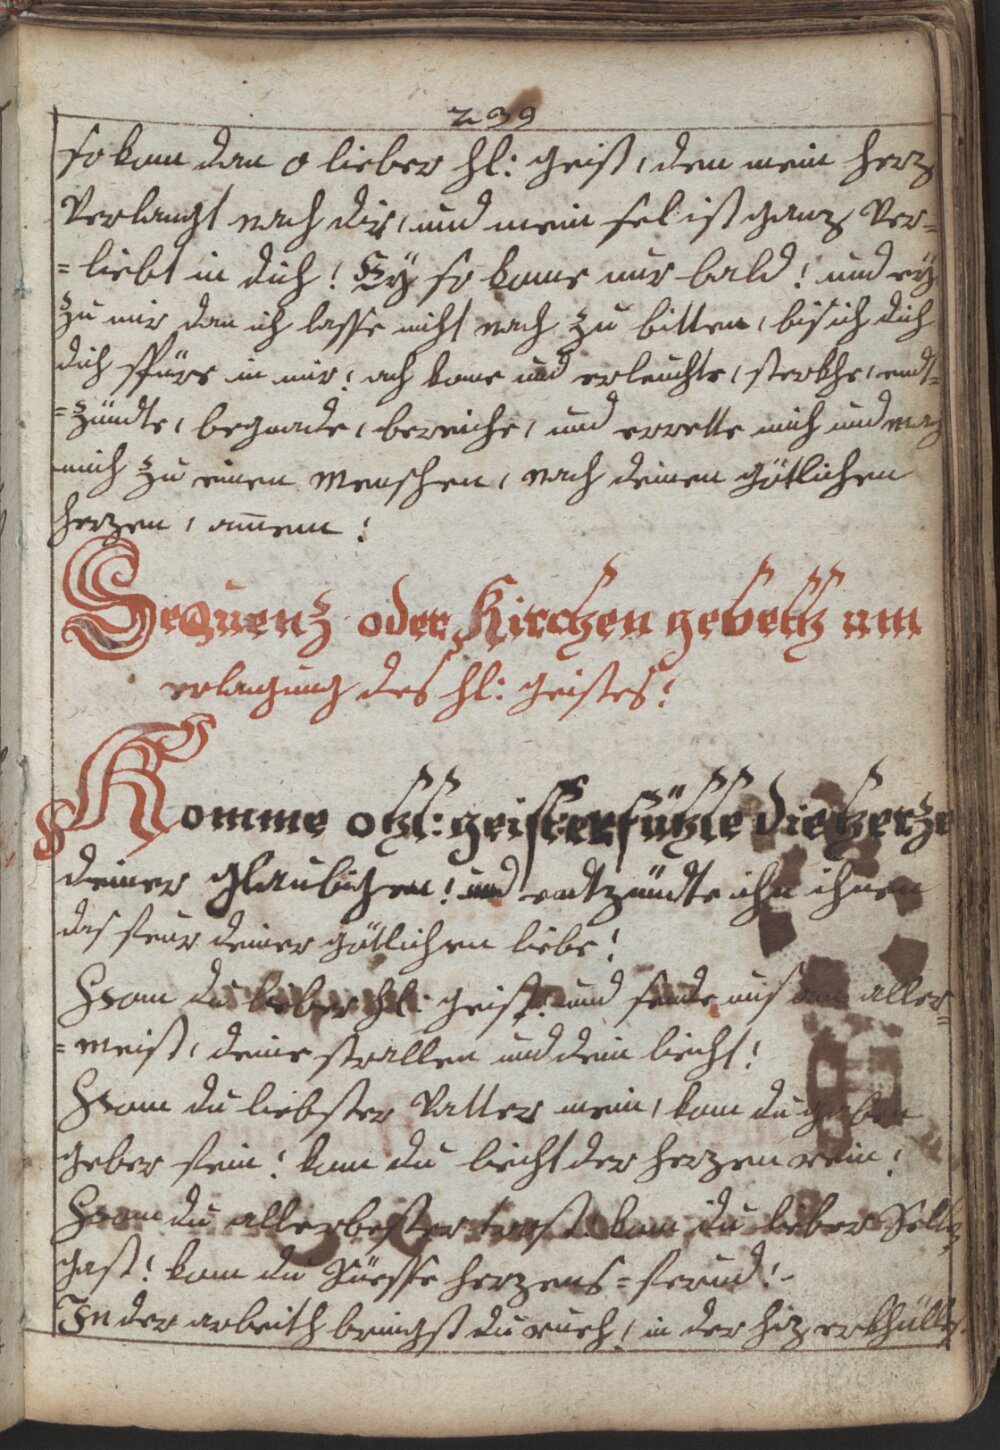 239
so kom dan o lieber hl: geist, den mein herz
Verlangt nach dir, und mein sel ist ganz Ver=
= liebt in dich! Ey so kome nur bald! und eÿ
zu mir dan ich lasse niht nach zu bitten, bis ich dich
dich spürs in mir; ach kome und erleuchte, sterkhe, endt=
=zündte, begnade, bereiche, und errette mich und mach
mich zu einen Menschen, nach deinen götlichen
herzen, amem!
Sequenz oder Kirchen gebett um
erlagung des hl: geistes!
Komme o hl: geist erfühle die herze
deiner glaubigen! und endtzündte ihn ihnen
das feur deiner götlichen liebe!
Kom du lieber hl: geist! und sende uns aller=
= meist, deine strallen und dein liecht!
Kom du liebster Vatter mein, kom du gaben
geber fein! kom du liecht der herzen rein!
Kom du allerbester trost! kom du lieber Selln
gast! kom du süesse herzens=freud!
In der arbeith bringst du rueh, in der hiz erkhüllst